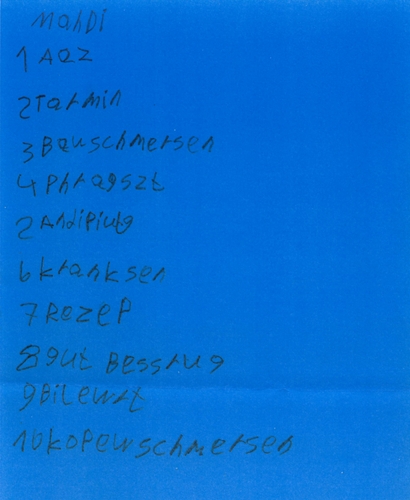 Mahdi
1 AQZ
2 Tarmin
3 Bauschmersen
4 Phragszt
2 Andipiutg
6 kranksen
7 Rezep
8 gut Besstug
9 Bilewst
10 kopewschmersen